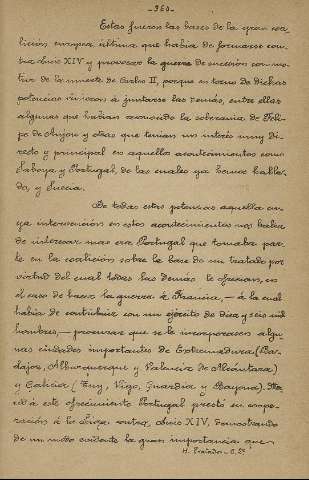 -360-
Estas fueron las bases de la gran coa-
lición europea última que había de formarse con-
tra Luis XIV y provocar la guerra de sucesión con mo-
tivo de la muerte de Carlos II, porque en torno de dichas
potencias vinieron á juntarse las demás, entre ellas
algunas que habían reconocido la soberanía de Feli-
pe de Anjou y otras que tenían un interés muy di-
recto y principal en aquellos acontecimientos como
Saboya y Portugal, de las cuales ya hemos habla-
do, y Suecia.
De todas estas potencias aquella cu-
ya intervención en estos acontecimientos nos había
de interesar mas era Portugal que tomaba par-
te en la coalición sobre la base de un tratado por
virtud del cual todas las demás le ofrecían, en
el caso de hacer la guerra á Francia, — á la cual
había de contribuir con un ejército de diez y seis mil
hombres, — procurar que se le incorporasen algu-
nas ciudades importantes de Extremadura (Ba-
dajoz, Alburquerque y Valencia de Alcántara)
y Galicia (Tuy, Vigo, Guardia y Bayona). Mer-
ced á este ofrecimiento Portugal prestó su coope-
ración á la Liga contra Luis XIV, demostrando
de un modo evidente la gran importancia que